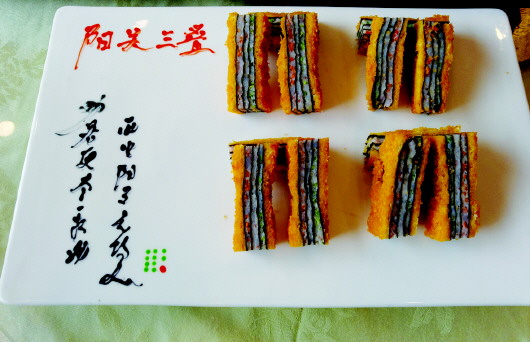 阳关三叠
劝君更尽一杯酒
西出阳关无故人